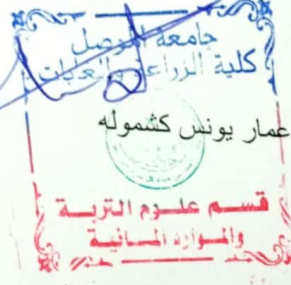 جامعة الموصل
كلية الزراعة والغابات
عمار يونس كشموله
قسم علوم التربة
والموارد المائية